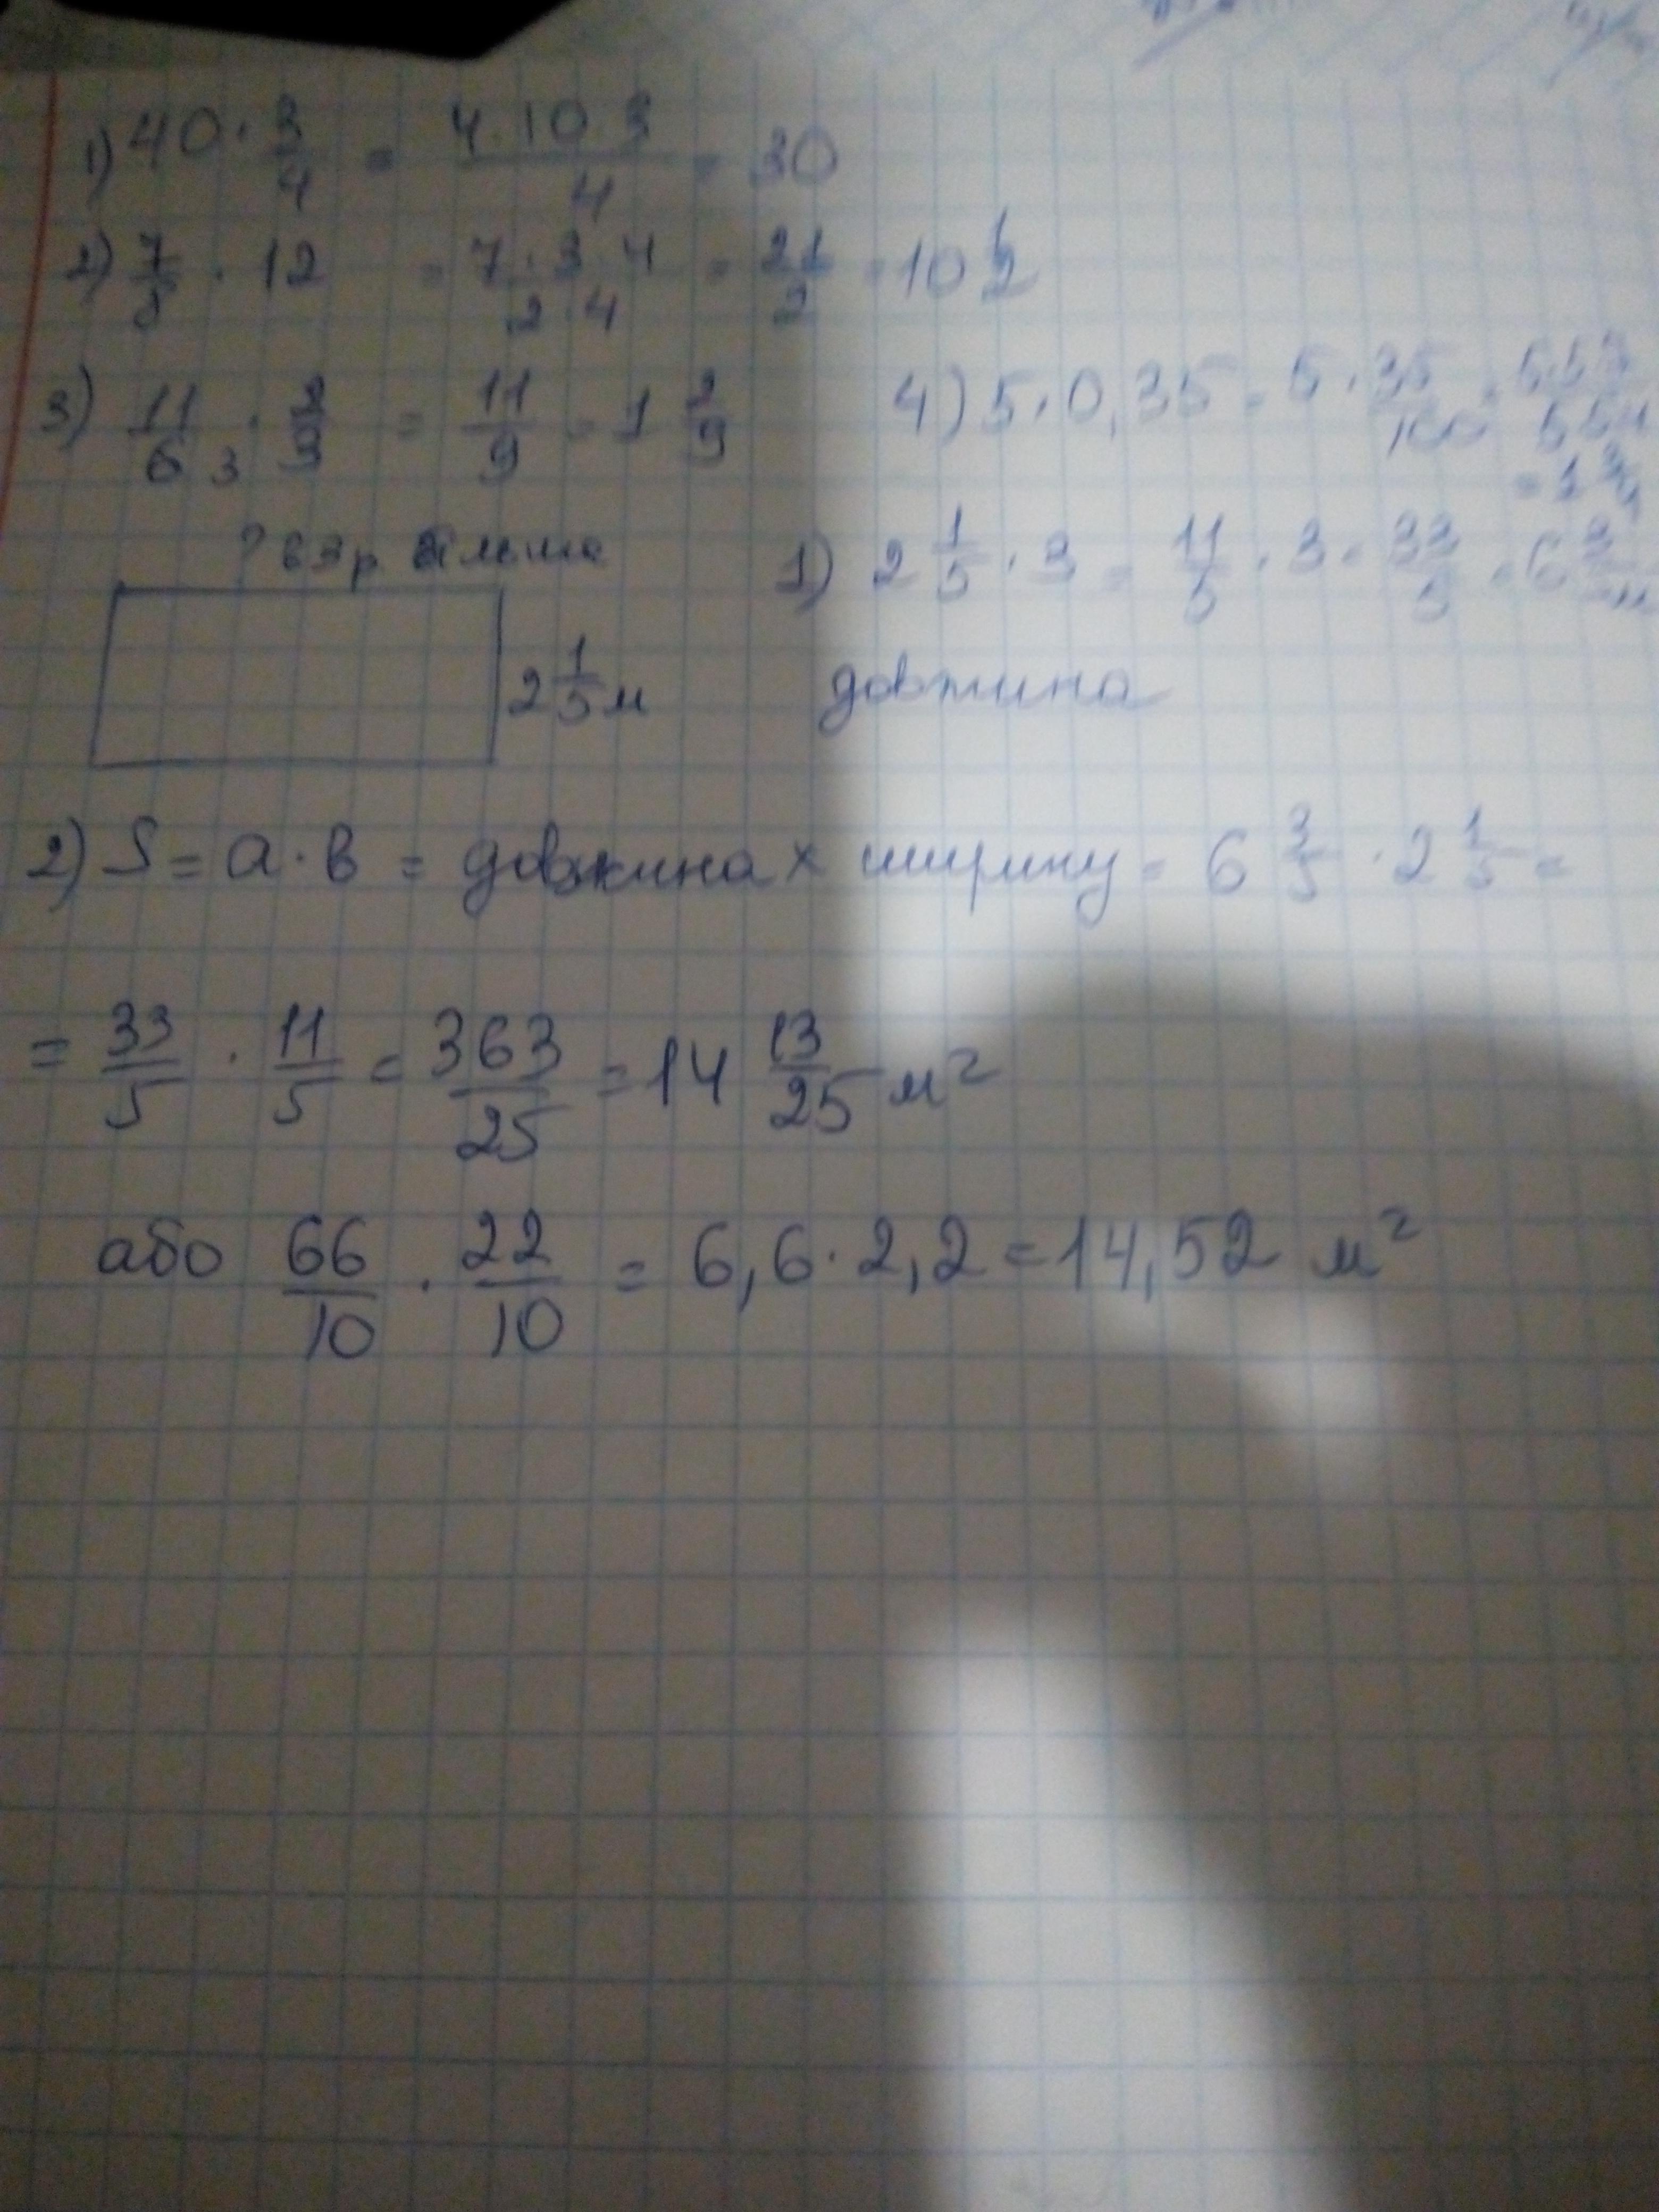 1) 40 · 3/4 = 4·10·3/4 = 30
2) 7/8 · 12 = 7·3·4/2·4 = 21/2 = 10 1/2
3) 11/6 3 · 2/9 = 11/9 = 1 2/9
4) 5·0,35 = 5 · 35/100 =
? в 3 р більша
2 1/5 м
1) 2 1/5 · 3 = 11/5 · 3 = 33/5 = 6 3/5 м
довжина
2) S = a · b = довжина x ширину = 6 3/5 · 2 1/5 =
= 33/5 · 11/5 = 363/25 = 14 13/25 м²
або 66/10 · 22/10 = 6,6 · 2,2 = 14,52 м²